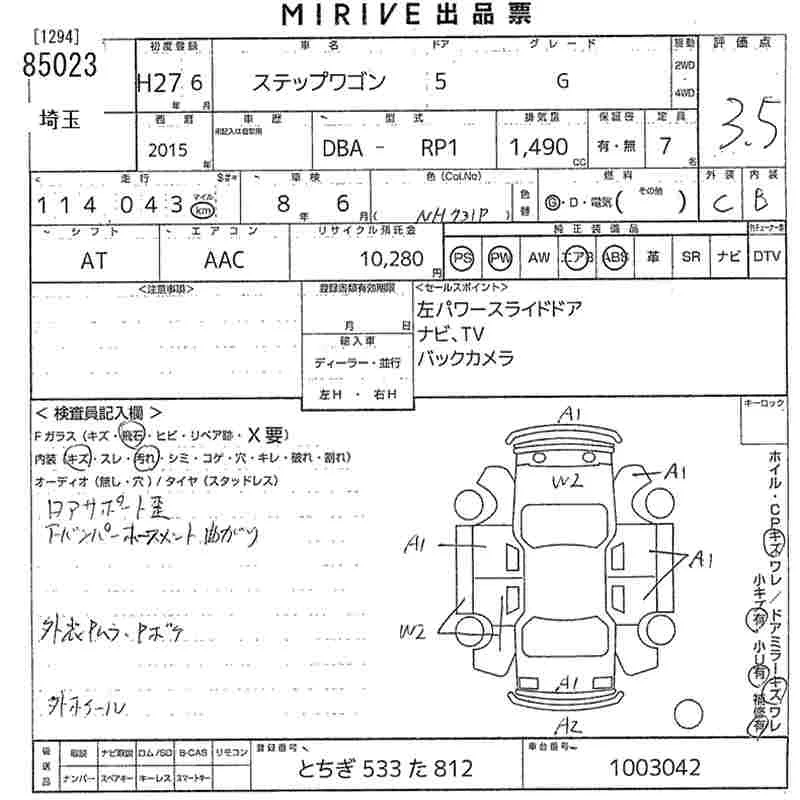 MIRIVE出品票
[1294]
85023
埼玉
初度登録
H27 6
年 月
車名
ステップワゴン
ドア
5
グレード
G
駆動
2WD
-
4WD
評価点
3.5
西暦
2015
年
車歴
型式
DBA - RP1
排気量
1,490
CC
保証書
有・無
定員
7
名
走行
114 043
マイル
km
車検
8年 6月
色(Col.No)
( NH731P )
色替
燃料
G・D・電気( その他 )
外装
C
内装
B
シフト
AT
エアコン
AAC
リサイクル預託金
10,280円
純正装備品
PS PW AW エアB ABS 革 SR ナビ
DTV
<注意事項>
登録書類有効期限
月 日
輸入車
ディーラー・並行
左H ・ 右H
<セールスポイント>
左パワースライドドア
ナビ、TV
バックカメラ
キーロック
< 検査員記入欄 >
Fガラス(キズ・飛石・ヒビ・リペア跡・X要)
内装(キズ・スレ・汚れ・シミ・コゲ・穴・キレ・破れ・割れ)
オーディオ(無し・穴)/タイヤ(スタッドレス)
ロアサポート歪
Fバンパーホースメント曲がり
外装Pムラ・Pボケ
外ホイール
A1
W2
A1
A1
A1
W2
A1
A2
ホイル・CPキズワレ/ドアミラーキズワレ
小キズ有 小U有 補修有
後送品
取説 ナビ取説 ロム/SD B-CAS リモコン
ナンバー スペアキー キーレス スマートキー
登録番号
とちぎ 533 た 812
車台番号
1003042